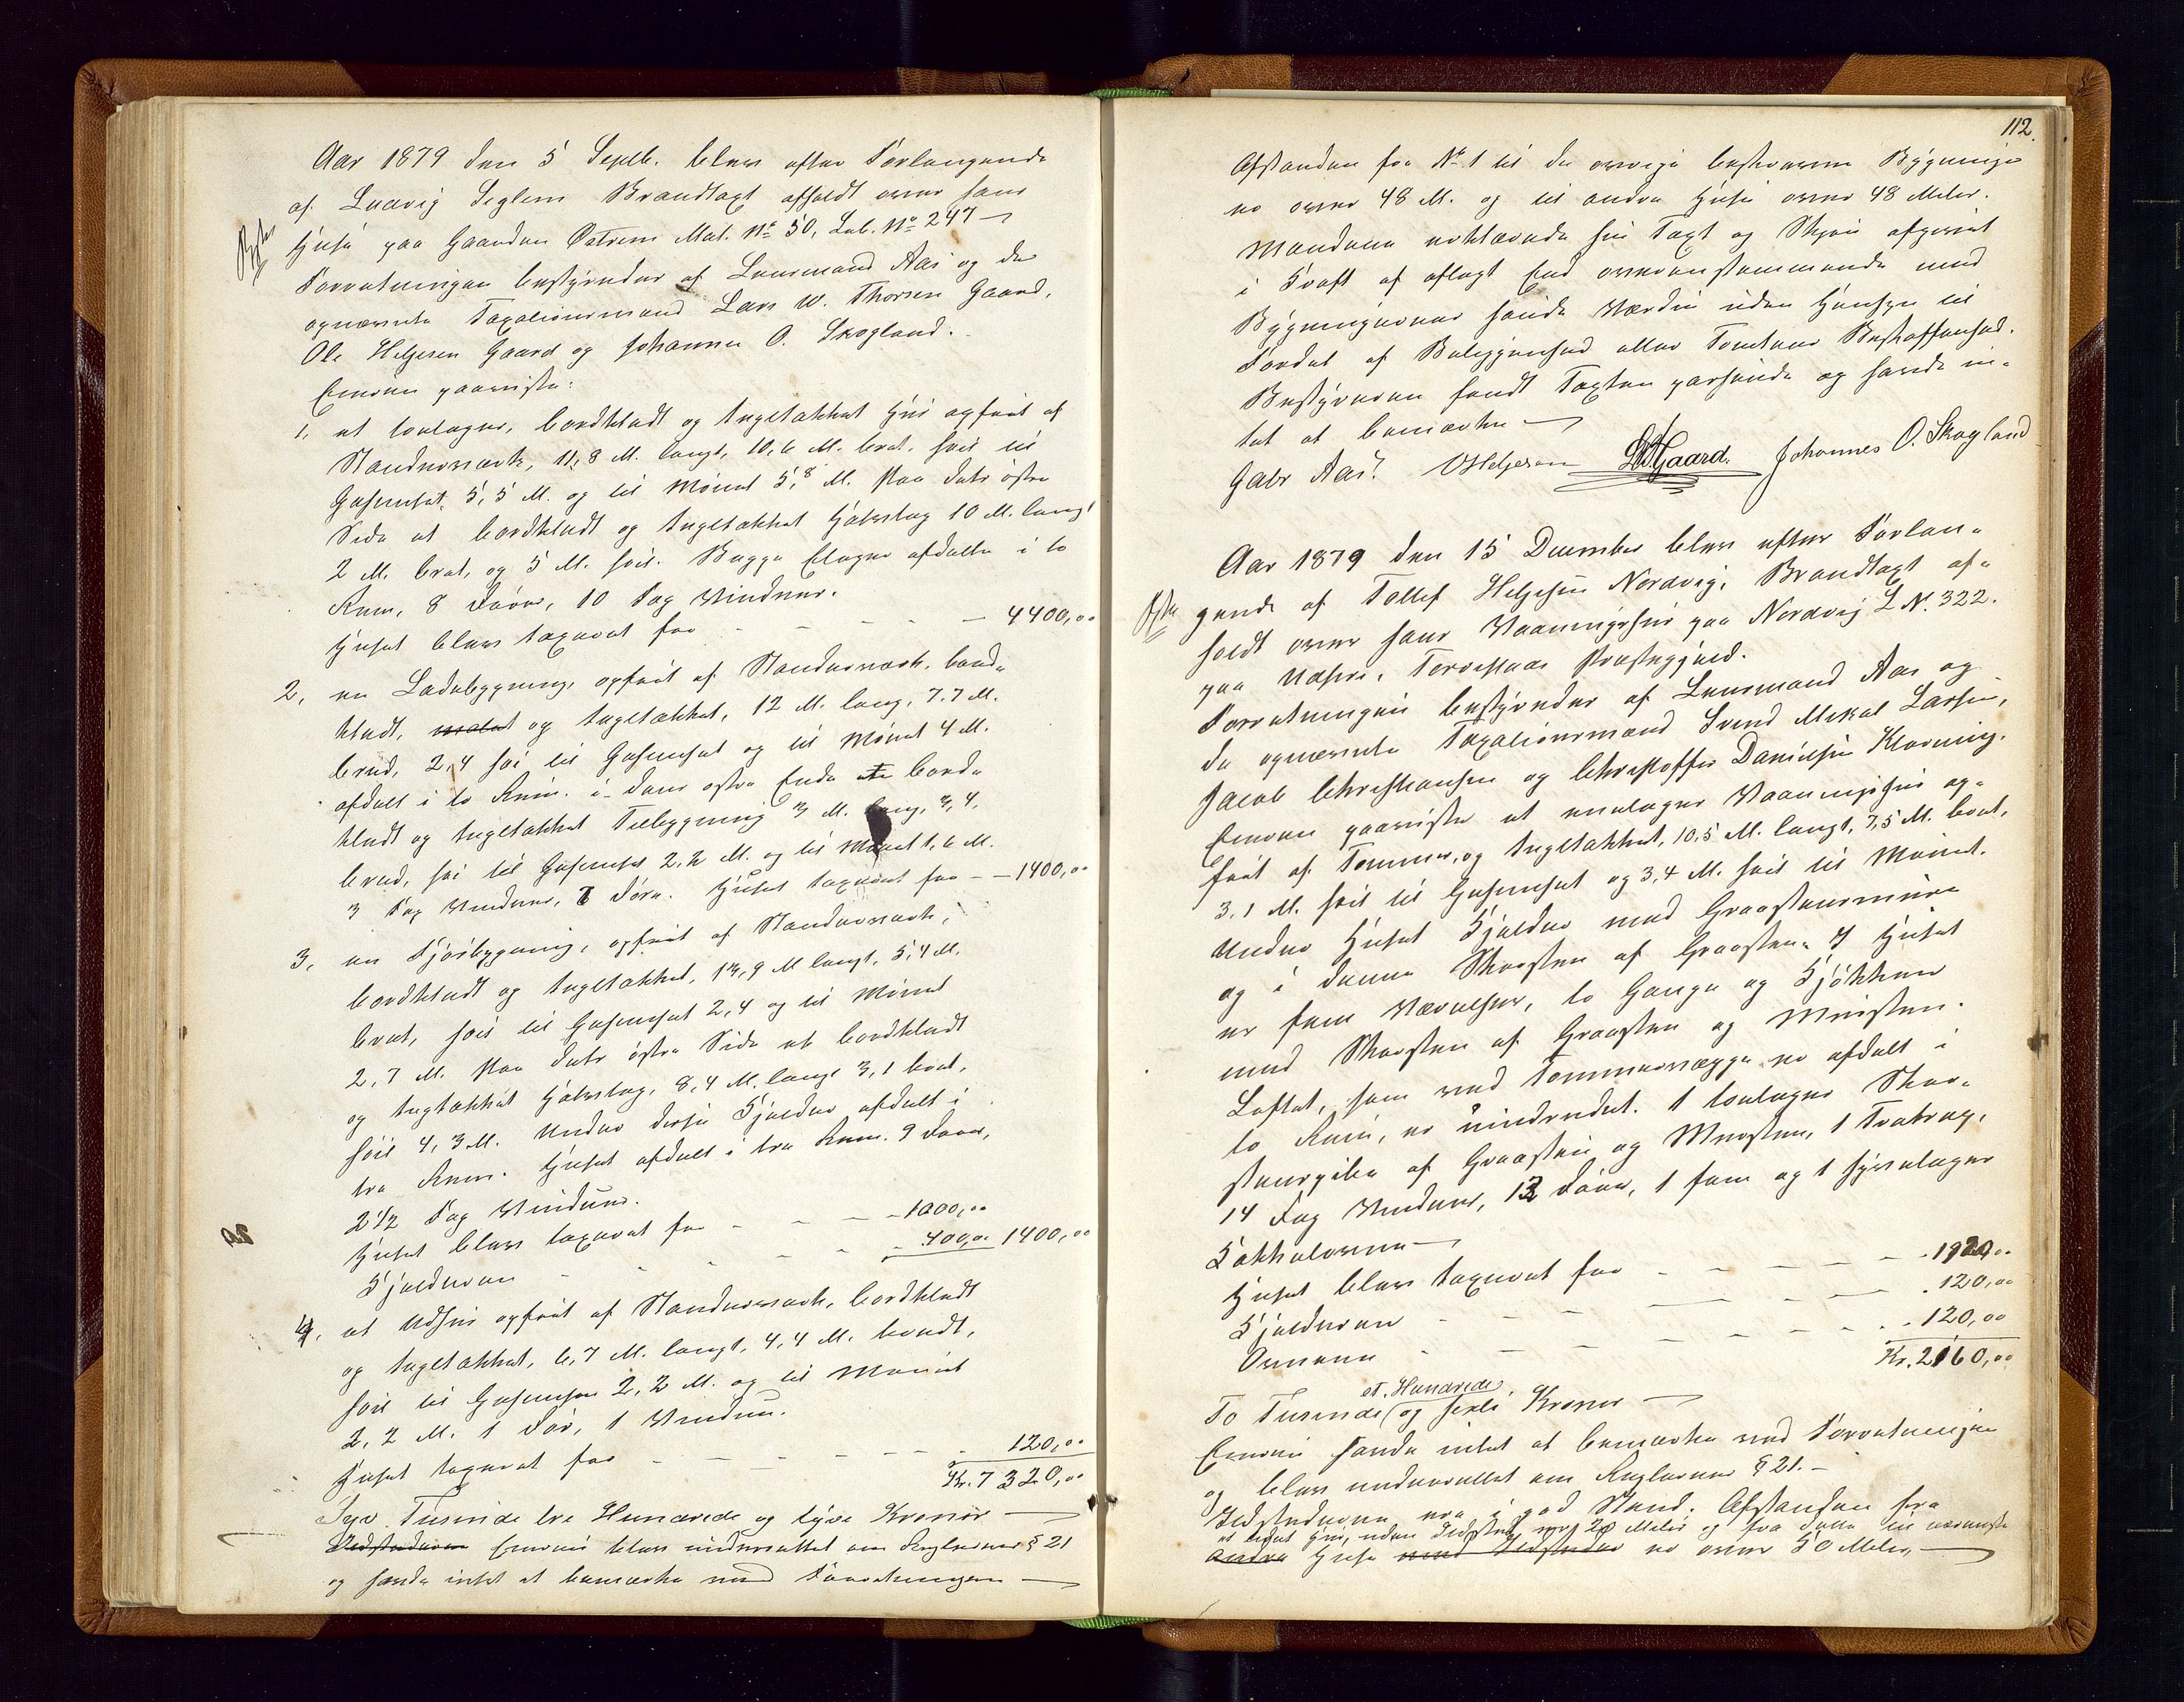 Aar 1879 den 5 Septb. blev efter Forlangende
af Ludvig Seglem Brandtaxt afholdt over hans
Huse paa Gaarden Østrem Mat. No 50, Løb. No 247
Forretningen bestyredes af Lensmand Aas og de
opnævnte Taxationsmænd Lars W. Thorsen Gaard,
Ole Helgesen Gaard og Johannes O. Skogland.
Eieren paaviste:
1, et toetages, bordklædt og teglstækket Huus opført af
Standerværk, 11,8 M. langt, 10,6 M. bredt, høit til
Gesimset 5,5 M. og til Mønet 5,8 M. Paa dets østre
Side et bordklædt og teglstækket Halvtag 10 M. langt
2 M. bredt, og 5 M. høit. Begge Etager afdelte i to
Rum, 8 Døre, 10 Fag Vinduer.
Huset blev taxeret for - - - - 4400,00
2, en Ladebygning, opført af Standerværk, bord-
klædt, malet og teglstækket, 12 M. lang, 7,7 M.
bred, 2,4 høi til Gesimset og til Mønet 4 M.
afdelt i to Rum. i dens østre Ende en bord-
klædt og teglstækket Tilbygning 3 M. lang, 3,4,
bred, høi til Gesimset 2,2 M. og til Mønet 1,6 M.
3 Fag Vinduer, 7 Døre. Huset taxeret for - - 1400,00
3, en Fjøsbygning, opført af Standerværk,
bordklædt og teglstækket, 13,9 M langt, 5,4 M.
bredt, høit til Gesimset 2,4 og til Mønet
2,7 M. Paa dets østre Side et bordklædt
og teglstækket Halvtag, 8,4 M. langt 3,1 bredt,
høit 4,3 M. Under disse Kjelder afdelt i
tre Rum. Huset afdelt i tre Rum. 9 Døre,
2 1/2 Fag Vinduer.
Huset blev taxeret for - - - - 1000,00
Kjelderen - - - - - 400,00 1400,00
4, et Udhus opført af Standerværk, bordklædt
og teglstækket, 6,7 M. langt, 4,4 M. bredt,
høit til Gesimset 2,2 M. og til Mønet
2,2 M. 1 Dør, 1 Vindue.
Huset taxeret for - - - - - 120,00
Kr. 7320,00
Syv Tusinde tre Hundrede og tyve Kroner
Ildstederne Eieren blev underrettet om Reglernes § 21
og havde intet at bemærke ved Forretningen
112.
Afstanden fra No 1 til de øvrige beskrevne Bygninger
er over 48 M. og til andre Huse over 48 Meter.
Mændene erklærede sin Taxt og Skjøn afgivet
i Kraft af aflagt Eed overensstemmende med
Bygningernes sande Værdi uden Hensyn til
Fordel af Beliggenhed eller Tomtens Beskaffenhed.
Bestyreren fandt Taxten passende og havde in-
tet at bemærke
Gabr Aas. O Helgesen LWGaard. Johannes O. Skogland
Aar 1879 den 15 December blev efter Forlan-
gende af Tollef Helgesen Nordvig, Brandtaxt af-
holdt over hans Vaaningshuus paa Nordvig L No. 322.
paa Udsire, Torvestad Præstegjeld.
Forretningen bestyredes af Lensmand Aas og
de opnævnte Taxationsmænd Svend Mikal Larsen,
Jacob Christiansen og Christoffer Danielsen Klovning.
Eieren paaviste et enetages Vaaningshuus op-
ført af Tømmer, og teglstækket, 10,5 M. langt, 7,5 M. bredt,
3,1 M. høit til Gesimset og 3,4 M. høit til Mønet.
Under Huset Kjelder med Graastensmure
og i denne Skorsten af Graasten. I Huset
er fem Værelser, to Gange og Kjøkken
med Skorsten af Graasten og Mursten.
Loftet, som ved Tømmervægge er afdelt i
to Rum, er uindredet. 1 toetages Skor-
stenspibe af Graasten og Mursten, 1 Trætrap,
14 Fag Vinduer, 12 Døre, 1 fem og 1 fireetages
Kakkelovne
Huset blev taxeret for - - - - - 1920,00
Kjelderen - - - - - 120,00
Ovnene - - - - - 120,00
Kr. 2160,00
et Hundrede
To Tusinde (og sexti Kroner
Eieren havde intet at bemærke ved Forretningen
og blev underrettet om Reglernes § 21. -
Ildstederne ere i god Stand. Afstanden fra
et lidet Huus, uden Ildsted 20 Meter og fra dette til nærmeste
andre Huse med Ildsteder er over 50 Meter,